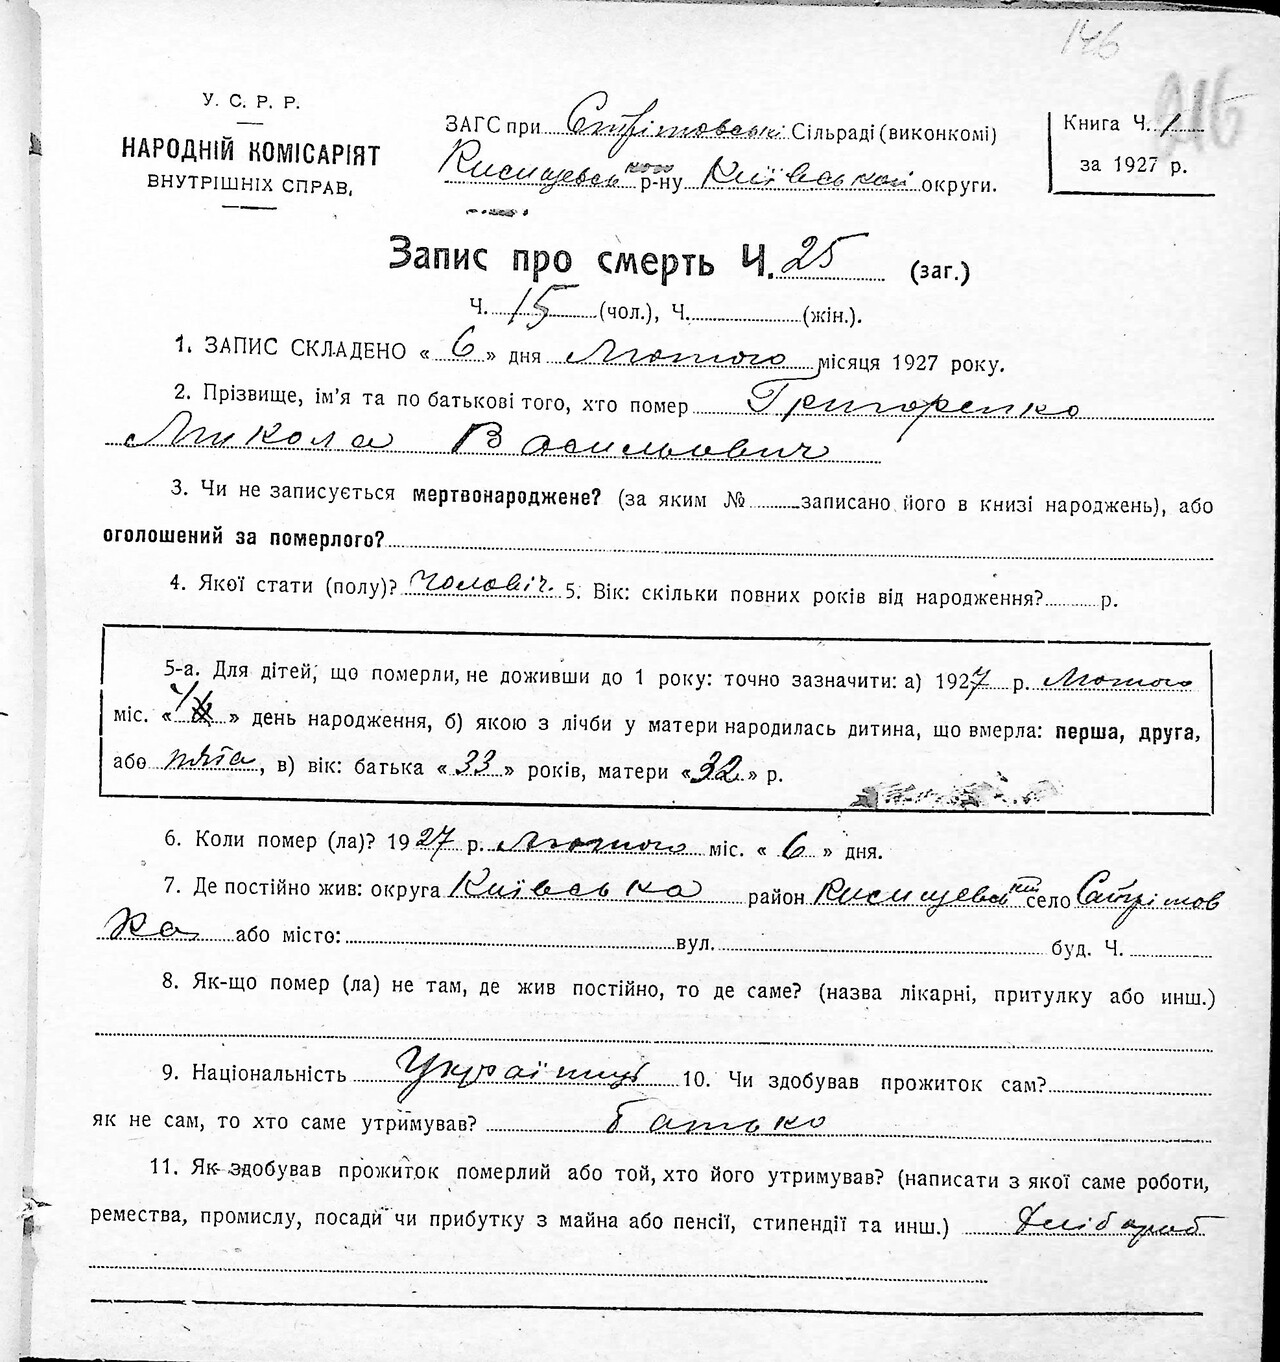 146
216
У. С. Р. Р.
НАРОДНІЙ КОМІСАРІЯТ
ВНУТРІШНІХ СПРАВ,
ЗАГС при Стрітовські Сільраді (виконкомі)
р-ну Київської округи.
Книга Ч. 1
за 1927 р.
Запис про смерть Ч. 25 (заг.)
Ч. 15 (чол.), Ч. (жін.).
1. ЗАПИС СКЛАДЕНО « 6 » дня Лютого місяця 1927 року.
2. Прізвище, ім'я та по батькові того, хто помер Григоренко
Микола Васильович
3. Чи не записується мертвонароджене? (за яким № записано його в книзі народжень), або
оголошений за померлого?
4. Якої стати (полу)? Чоловіч. 5. Вік: скільки повних років від народження? р.
5-а. Для дітей, що померли, не доживши до 1 року: точно зазначити: а) 1927 р. Лютого
міс. « » день народження, б) якою з лічби у матери народилась дитина, що вмерла: перша, друга,
або пята, в) вік: батька « 33 » років, матери « 32 » р.
6. Коли помер (ла)? 1927 р. Лютого міс. « 6 » дня.
7. Де постійно жив: округа Київська район село Стрітов
ка або місто: вул. буд. Ч.
8. Як-що помер (ла) не там, де жив постійно, то де саме? (назва лікарні, притулку або инш.)
9. Національність Українець 10. Чи здобував прожиток сам?
як не сам, то хто саме утримував? батько
11. Як здобував прожиток померлий або той, хто його утримував? (написати з якої саме роботи,
ремества, промислу, посади чи прибутку з майна або пенсії, стипендії та инш.) Хлібороб